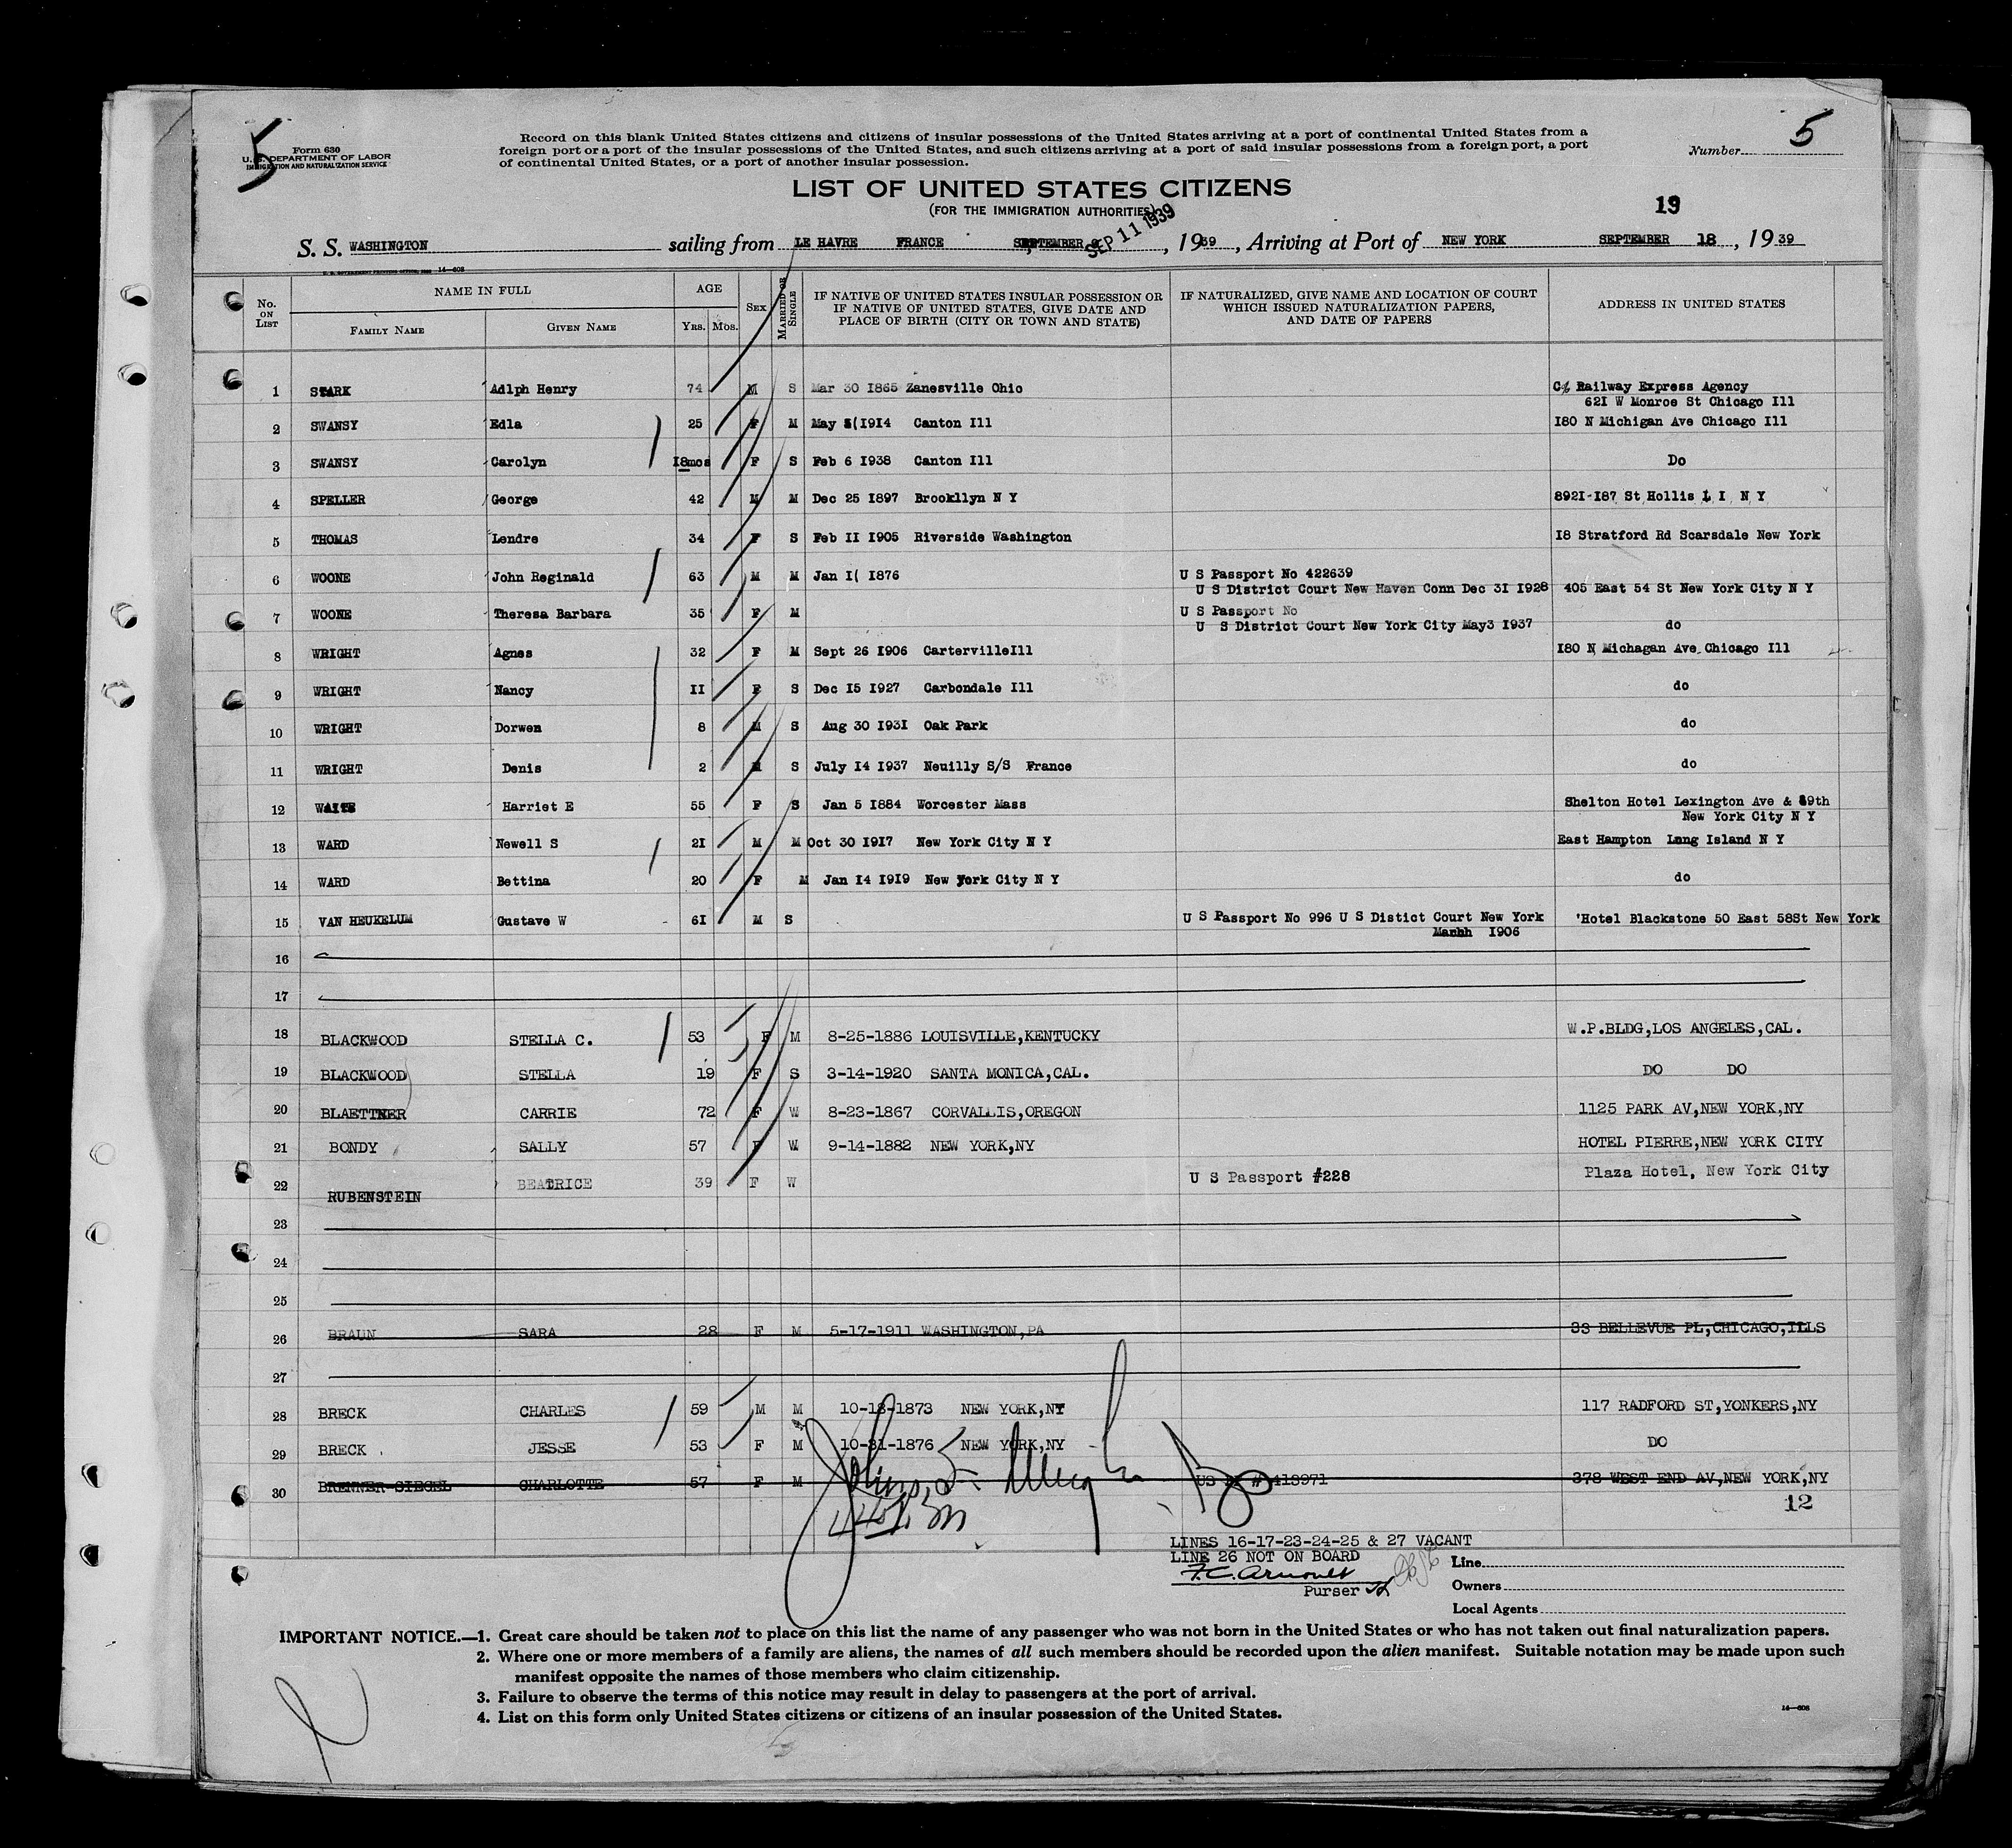 5
Form 630
U. S. DEPARTMENT OF LABOR
IMMIGRATION AND NATURALIZATION SERVICE
Record on this blank United States citizens and citizens of insular possessions of the United States arriving at a port of continental United States from a
foreign port or a port of the insular possessions of the United States, and such citizens arriving at a port of said insular possessions from a foreign port, a port
of continental United States, or a port of another insular possession.
Number 5
LIST OF UNITED STATES CITIZENS
(FOR THE IMMIGRATION AUTHORITIES)
19
SEP 11 1939
S. S. WASHINGTON sailing from LE HAVRE FRANCE SEPTEMBER , 1939 , Arriving at Port of NEW YORK SEPTEMBER 18 , 1939
14—608
No. ON LIST NAME IN FULL FAMILY NAME GIVEN NAME AGE YRS. MOS. SEX MARRIED OR SINGLE IF NATIVE OF UNITED STATES INSULAR POSSESSION OR IF NATIVE OF UNITED STATES, GIVE DATE AND PLACE OF BIRTH (CITY OR TOWN AND STATE) IF NATURALIZED, GIVE NAME AND LOCATION OF COURT WHICH ISSUED NATURALIZATION PAPERS, AND DATE OF PAPERS ADDRESS IN UNITED STATES
1 STARK Adlph Henry 74 M S Mar 30 1865 Zanesville Ohio C/o Railway Express Agency
621 W Monroe St Chicago Ill
2 SWANSY Edla 25 F M May 1914 Canton Ill 180 N Michigan Ave Chicago Ill
3 SWANSY Carolyn 18mos F S Feb 6 1938 Canton Ill Do
4 SPELLER George 42 M M Dec 25 1897 Brookllyn N Y 8921-187 St Hollis L I N Y
5 THOMAS Lendre 34 F S Feb 11 1905 Riverside Washington 18 Stratford Rd Scarsdale New York
6 WOONE John Reginald 63 M M Jan 1( 1876 U S Passport No 422639
U S District Court New Haven Conn Dec 31 1928 405 East 54 St New York City N Y
7 WOONE Theresa Barbara 35 F M U S Passport No
U S District Court New York City May3 1937 do
8 WRIGHT Agnes 32 F M Sept 26 1906 CartervilleIll 180 N Michagan Ave Chicago Ill
9 WRIGHT Nancy 11 F S Dec 15 1927 Carbondale Ill do
10 WRIGHT Dorwen 8 M S Aug 30 1931 Oak Park do
11 WRIGHT Denis 2 M S July 14 1937 Neuilly S/S France do
12 WAITE Harriet E 55 F S Jan 5 1884 Worcester Mass Shelton Hotel Lexington Ave & 89th
New York City N Y
13 WARD Newell S 21 M M Oct 30 1917 New York City N Y East Hampton Lmng Island N Y
14 WARD Bettina 20 F M Jan 14 1919 New York City N Y do
15 VAN HEUKELUM Gustave W 61 M S U S Passport No 996 U S Distict Court New York 'Hotel Blackstone 50 East 58St New York
1906
16
17
18 BLACKWOOD STELLA C. 53 F M 8-25-1886 LOUISVILLE,KENTUCKY W.P.BLDG,LOS ANGELES,CAL.
19 BLACKWOOD STELLA 19 F S 3-14-1920 SANTA MONICA,CAL. DO DO
20 BLAETTNER CARRIE 72 F W 8-23-1867 CORVALLIS,OREGON 1125 PARK AV,NEW YORK,NY
21 BONDY SALLY 57 F W 9-14-1882 NEW YORK,NY HOTEL PIERRE,NEW YORK CITY
22 RUBENSTEIN BEATRICE 39 F W U S Passport #228 Plaza Hotel, New York City
23
24
25
26 BRAUN SARA 28 F M 5-17-1911 WASHINGTON,PA 33 BELLEVUE PL,CHICAGO,ILLS
27
28 BRECK CHARLES 59 M M 10-18-1873 NEW YORK,NY 117 RADFORD ST,YONKERS,NY
29 BRECK JESSE 53 F M 10-31-1876 NEW YORK,NY DO
30 BRENNER-SIEGEL CHARLOTTE 57 F M US # 413971 378 WEST END AV,NEW YORK,NY
12
LINES 16-17-23-24-25 & 27 VACANT
LINE 26 NOT ON BOARD
F.C. Arnoult
Purser
Line
Owners
Local Agents
IMPORTANT NOTICE.—1. Great care should be taken not to place on this list the name of any passenger who was not born in the United States or who has not taken out final naturalization papers.
2. Where one or more members of a family are aliens, the names of all such members should be recorded upon the alien manifest. Suitable notation may be made upon such
manifest opposite the names of those members who claim citizenship.
3. Failure to observe the terms of this notice may result in delay to passengers at the port of arrival.
4. List on this form only United States citizens or citizens of an insular possession of the United States.
14—608